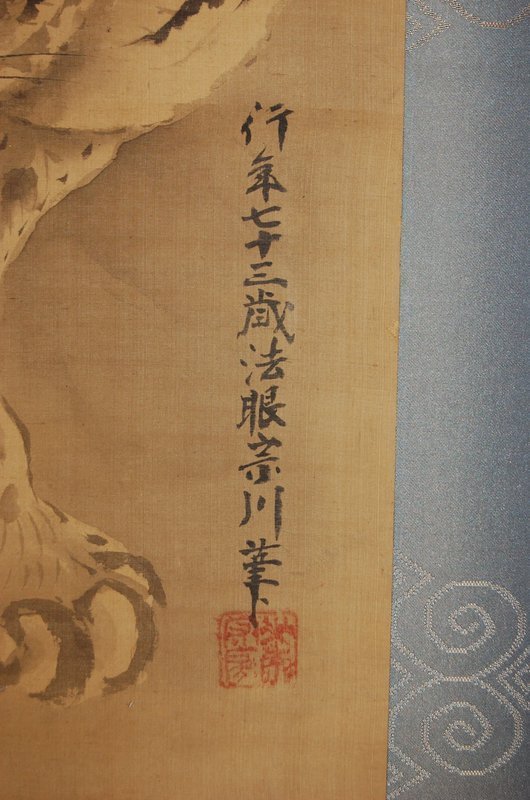 行年七十三歳法眼宗川筆